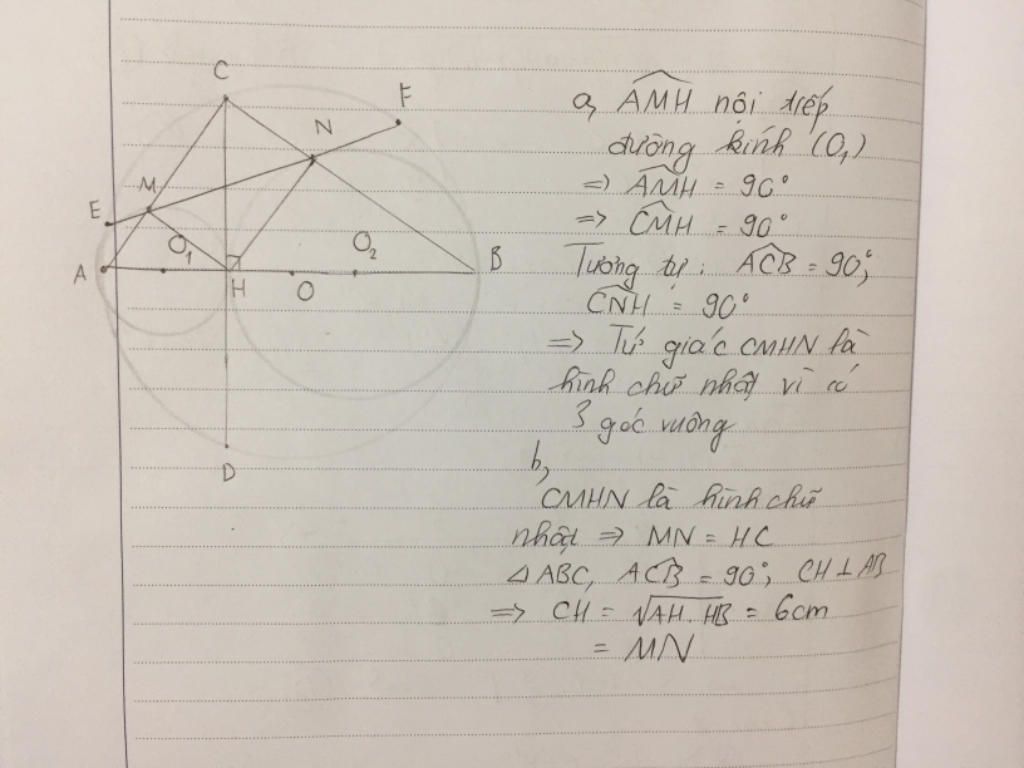 C
F
N
M
E
O₁
O₂
A
B
H
O
D
a, AMH nội tiếp
đường kính (O₁)
=> AMH = 90°
=> CMH = 90°
Tương tự: ACB = 90°;
CNH = 90°
=> Tứ giác CMHN là
hình chữ nhật vì có
3 góc vuông
b,
CMHN là hình chữ
nhật => MN = HC
△ABC, ACB = 90°; CH ⊥ AB
=> CH = √AH.HB = 6cm
= MN